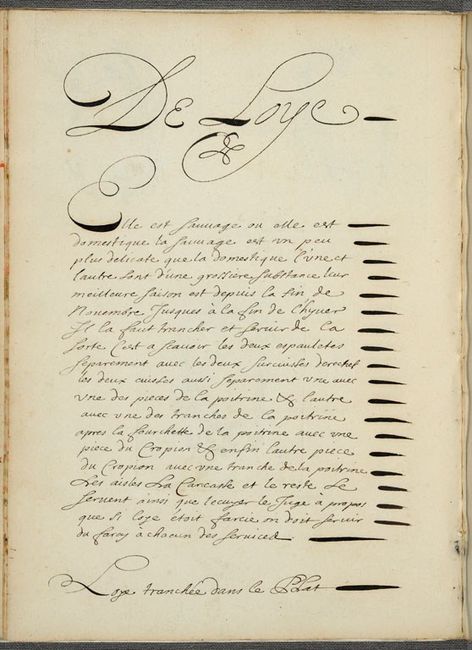 De Loye
&
Elle est sauvage ou elle est
domestique la sauvage est vn peu
plus delicate que la domestique l'vne et
l'autre sont d'une grossiere substance leur
meilleure saison est depuis la fin de
Nouembre Jusques a la fin de l'hyuer
Il la faut trancher et seruir de la
sorte C'est a scauoir les deux espauletes
separement auec les deux surcuisses derechef
les deux cuisses aussi separement vne auec
vne des pieces de la poitrine & l'autre
auec vne des tranches de la poitrine
apres la fourchette de la poitrine auec vne
piece du Cropion & enfin l'autre piece
du Cropion auec vne tranche de la poitrine
Les aisles La Carcasse et le reste se
seruent ainsi que l'ecuyer le Juge a propos
que si loye etoit farcie on doit seruir
du faray a chacun des services
Loye tranchée dans le Plat